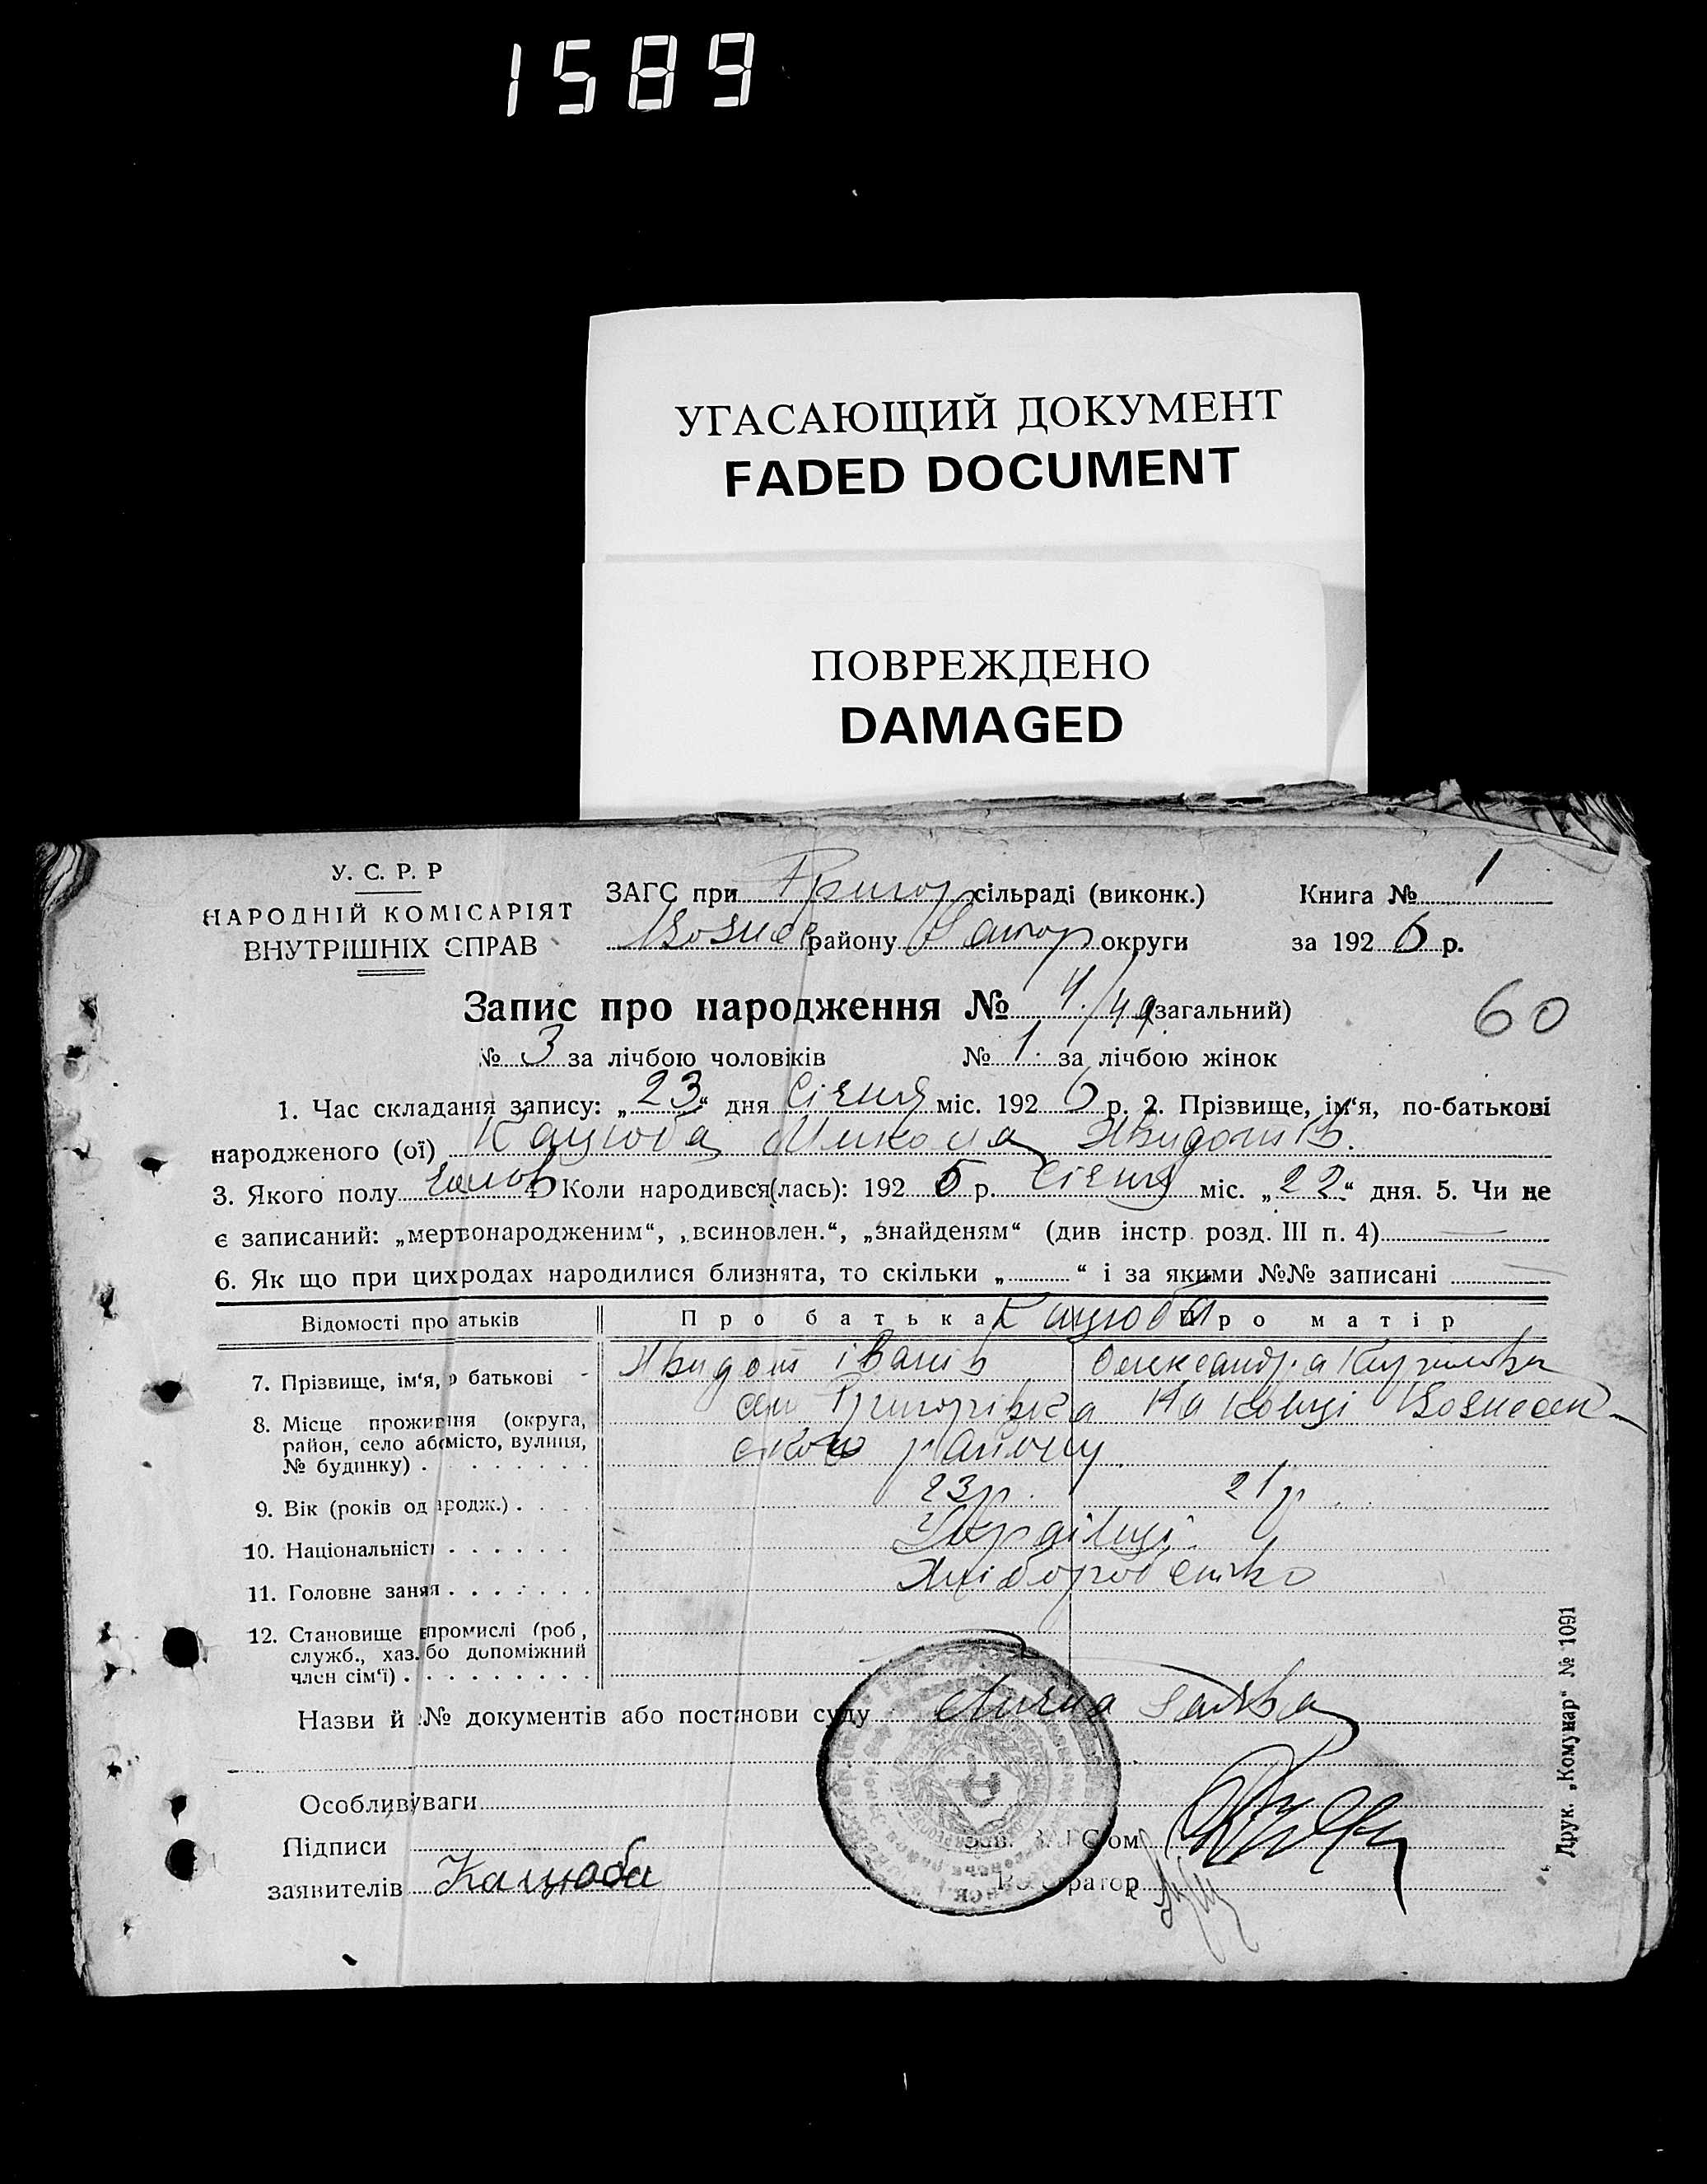 1589
УГАСАЮЩИЙ ДОКУМЕНТ
FADED DOCUMENT
ПОВРЕЖДЕНО
DAMAGED
У. С. Р. Р
НАРОДНІЙ КОМІСАРІЯТ
ВНУТРІШНІХ СПРАВ
ЗАГС при Григор сільраді (виконк.)
Вознес району Запор округи
Книга № 1
за 1926 р.
Запис про народження № 4./49 (загальний)
60
№ 3 за лічбою чоловіків № 1. за лічбою жінок
1. Час складання запису: „23“ дня Січня міс. 1926 р. 2. Прізвище, ім‘я, по-батькові
народженого (ої) Кацюба Микола Явдотів.
3. Якого полу чолов 4 Коли народився(лась): 1926 р. Січня міс. „22“ дня. 5. Чи не
є записаний: „мертвонародженим“, „всиновлен.“, „знайденям“ (див інстр. розд. III п. 4)
6. Як що при цих родах народилися близнята, то скільки „ “ і за якими №№ записані
Відомості про батьків Про батька Кацюби Про матір
7. Прізвище, ім‘я, по батькові - Івапів Олександра
8. Місце проживання (округа, Григорівка Вознесен-
район, село або місто, вулиця, ского району
№ будинку)
9. Вік (років од народж.) 23 р. 21 р
10. Національність Українці
11. Головне заняя Хліборобство
12. Становище в промислі (роб,
служб., хаз. або допоміжний
член сім‘ї)
Назви й №№ документів або постанови суду Лична заява
Особливі уваги
Підписи Зав. ЗАГС‘ом
заявителів Кацюба Реєстратор
Друк. „Комунар“ № 1091